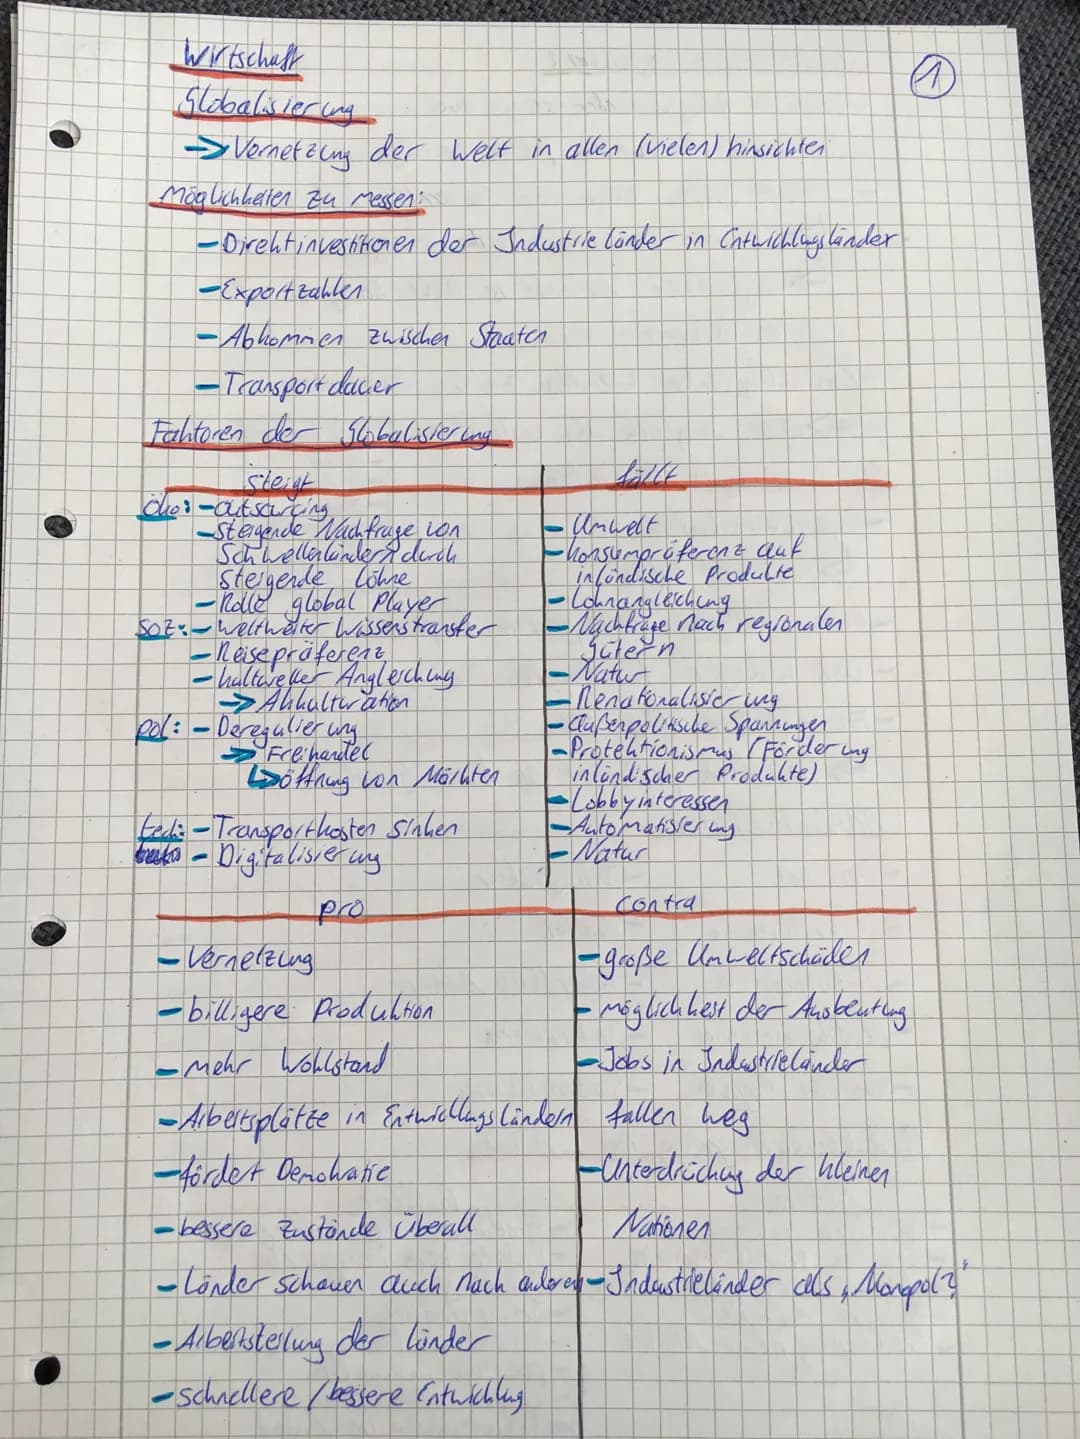 Wirtschaft
1
Globalisierung
→ Vernetzung der Welt in allen (vielen) hinsichten
Möglichkeiten zu messen:
- Direktinvestitionen der Industrieländer in Entwicklungsländer
- Exportzahlen
- Abkommen zwischen Staaten
- Transportdauer
Faktoren der Globalisierung
steigt
öko: - outsourcing
- steigende Nachfrage von
Schwellenländern durch
steigende Löhne
- Rolle global Player
soz: - weltweiter Wissenstransfer
- Reisepräferenz
- kultureller Angleichung
→ Akkulturation
pol: - Deregulierung
→ Freihandel
↳ öffnung von Märkten
tech: - Transportkosten sinken
- Digitalisierung
fällt
- Umwelt
- konsumpräferenz auf
inländische Produkte
- Lohnangleichung
- Nachfrage nach regionalen
gütern
- Natur
- Renationalisierung
- außenpolitische Spannungen
- Protektionismus (Förderung
inländischer Produkte)
- Lobbyinteressen
- Automatisierung
- Natur
pro
- Vernetzung
- billigere Produktion
- mehr Wohlstand
- Arbeitsplätze in Entwicklungsländern
- fördert Demokratie
- bessere Zustände überall
- Länder schauen auch nach anderen
- Arbeitsteilung der länder
- schnellere / bessere Entwicklung
contra
- große Umweltschäden
- möglichkeit der Ausbeutung
- Jobs in Industrieländer
fallen weg
- Unterdrückung der kleinen
Nationen
- Industrieländer als „Monopol?"